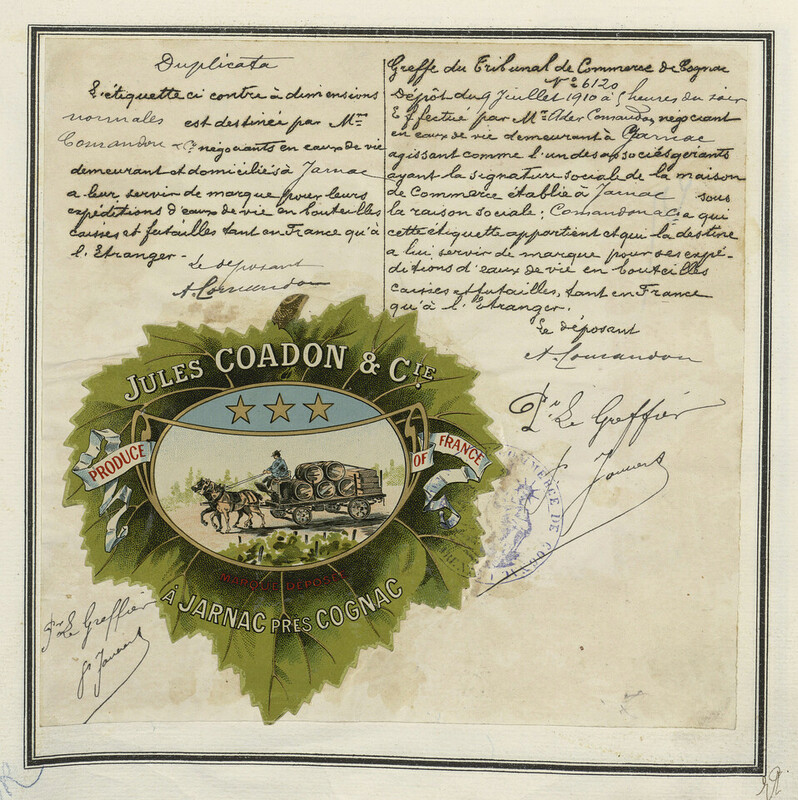 Duplicata
L'étiquette ci contre à dimensions
normales est destinée par Mrs
Comandon & Cie négociants en eaux de vie
demeurant et domiciliés à Jarnac
a leur servir de marque pour leurs
expéditions d'eaux de vie en bouteilles
caisses et futailles tant en France qu'à
l'Etranger -
Le déposant
A. Comandon
Greffe du Tribunal de Commerce de Cognac
N° 6120
Dépôt du 9 Juillet 1910 à 5 heures du soir
Effectué par Mr Ader Comandon, négociant
en eaux de vie demeurant à Jarnac
agissant comme l'un des associés gérants
ayant la signature sociale de la maison
de Commerce établie à Jarnac sous
la raison sociale: Comandon & Cie a qui
cette étiquette appartient et qui la destine
a lui servir de marque pour ses expé-
ditions d'eaux de vie en bouteilles
caisses et futailles, tant en France
qu'à l'Etranger.
Le déposant
A. Comandon
Pr Le Greffier
JULES COADON & CIE
PRODUCE OF FRANCE
MARQUE DÉPOSÉE
À JARNAC PRÈS COGNAC
COMMERCE DE COGNAC
Pr Le Greffier